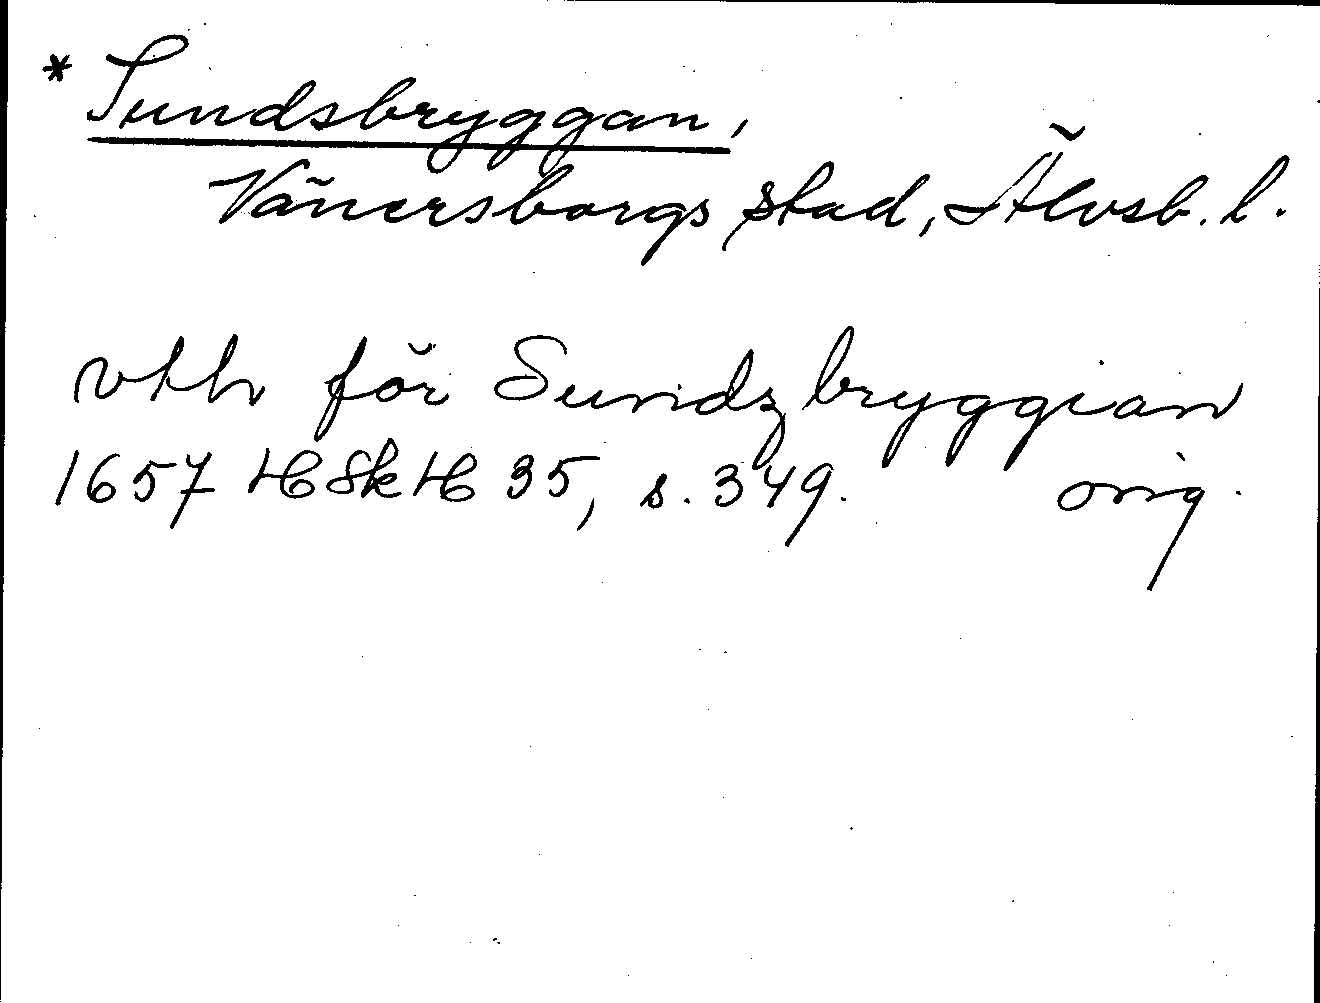 * Sundsbryggan,
Vänersborgs stad, Älvsb. l.
vth för Sundz bryggian
1657 HSkH 35, s. 349. orig.